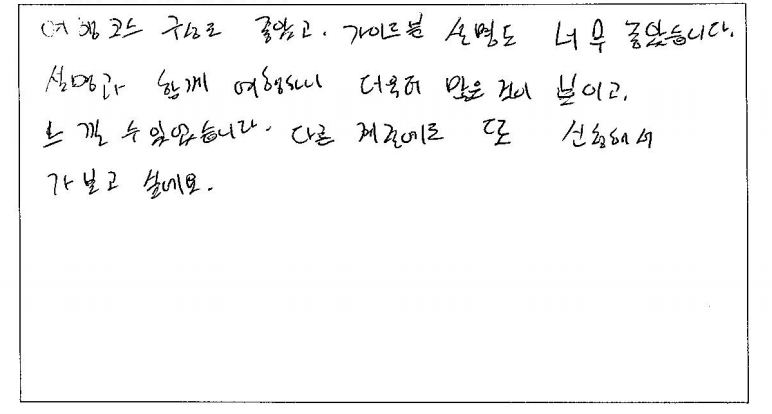 여행코스 구성도 좋았고. 가이드분 설명도 너무 좋았습니다.
설명과 함께 여행하니 더욱더 많은 것이 보이고,
느낄 수 있었습니다. 다른 계절에도 또 신청해서
가보고 싶네요.